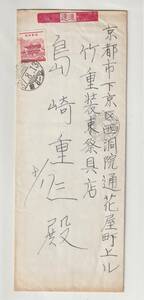 速達
京都市下京区西洞院通花屋町上ル
竹重装束祭具店
島崎重
殿